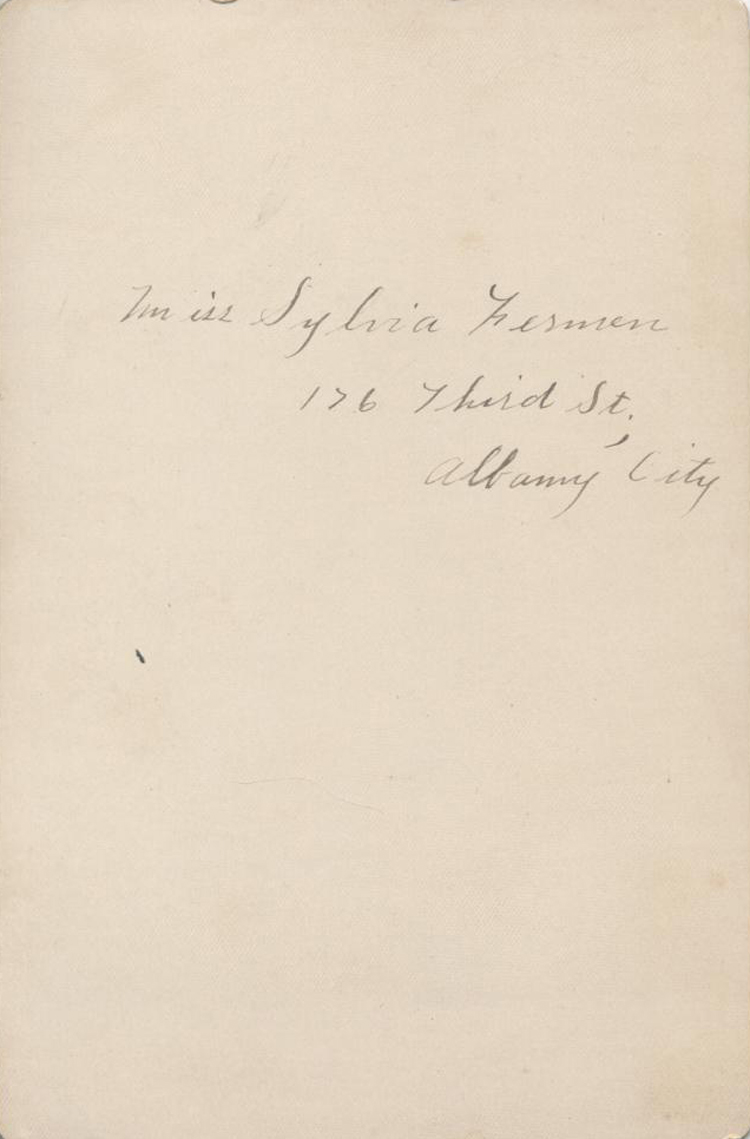 Miss Sylvia Fermen
176 Third St.
Albany, City